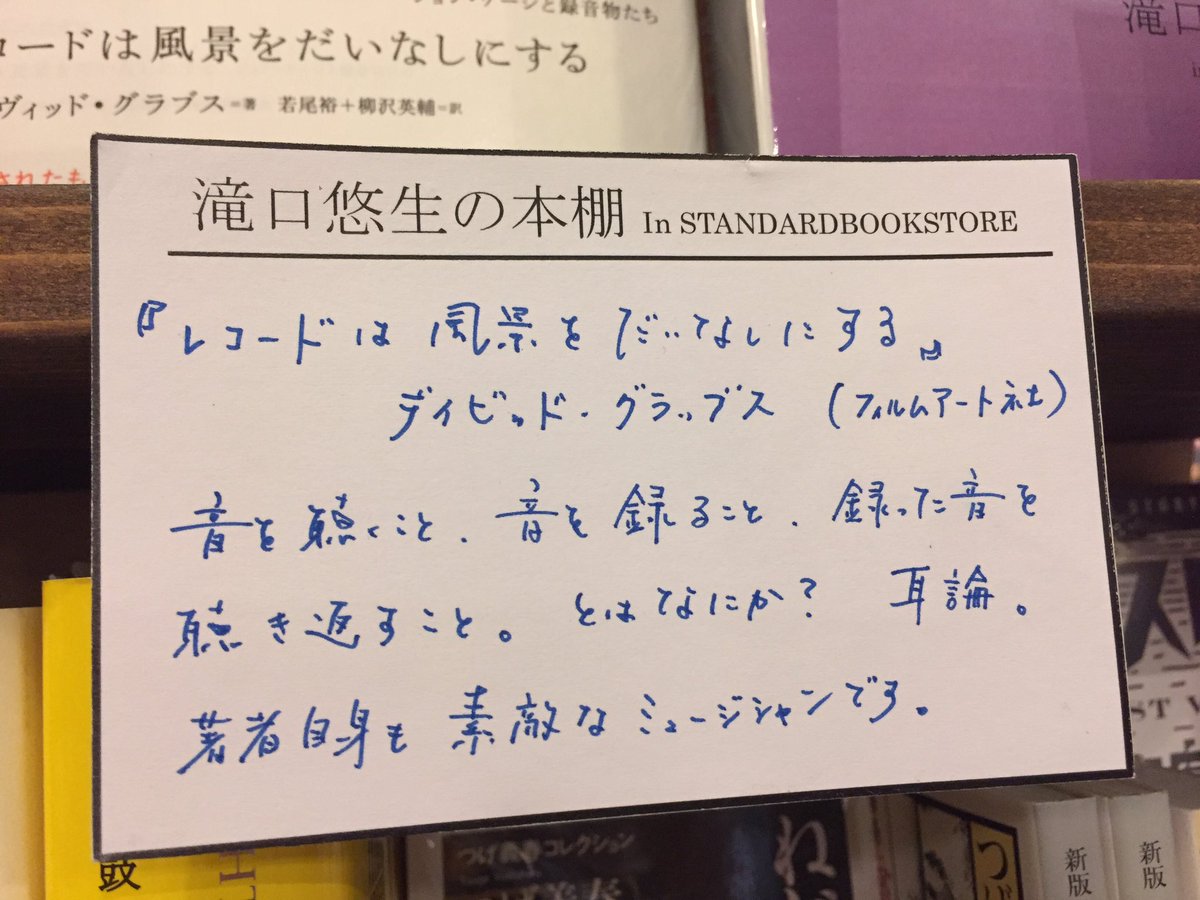 ョン・ケージと録音物たち
コードは風景をだいなしにする
ヴィッド・グラブス=著 若尾裕+柳沢英輔=訳
されたも
滝口
滝口悠生の本棚 In STANDARDBOOKSTORE
『レコードは風景をだいなしにする』
デイビッド・グラッブス (フィルムアート社)
音を聴くこと、音を録ること、録った音を
聴き返すこと。とはなにか? 耳論。
著者自身も素敵なミュージシャンです。
ST V
鼓
つげ義春コレクション
ね
つげ
新版
新版